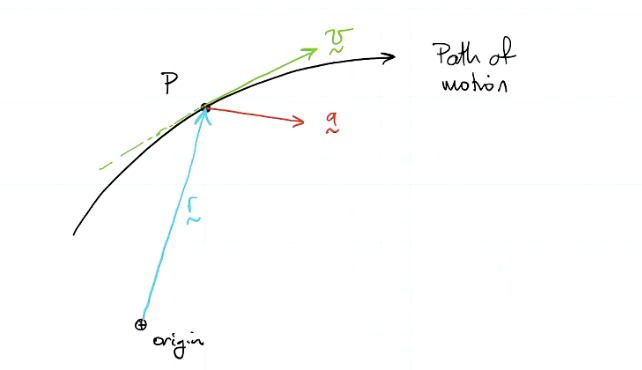 v
P
Path of
motion
a
r
origin